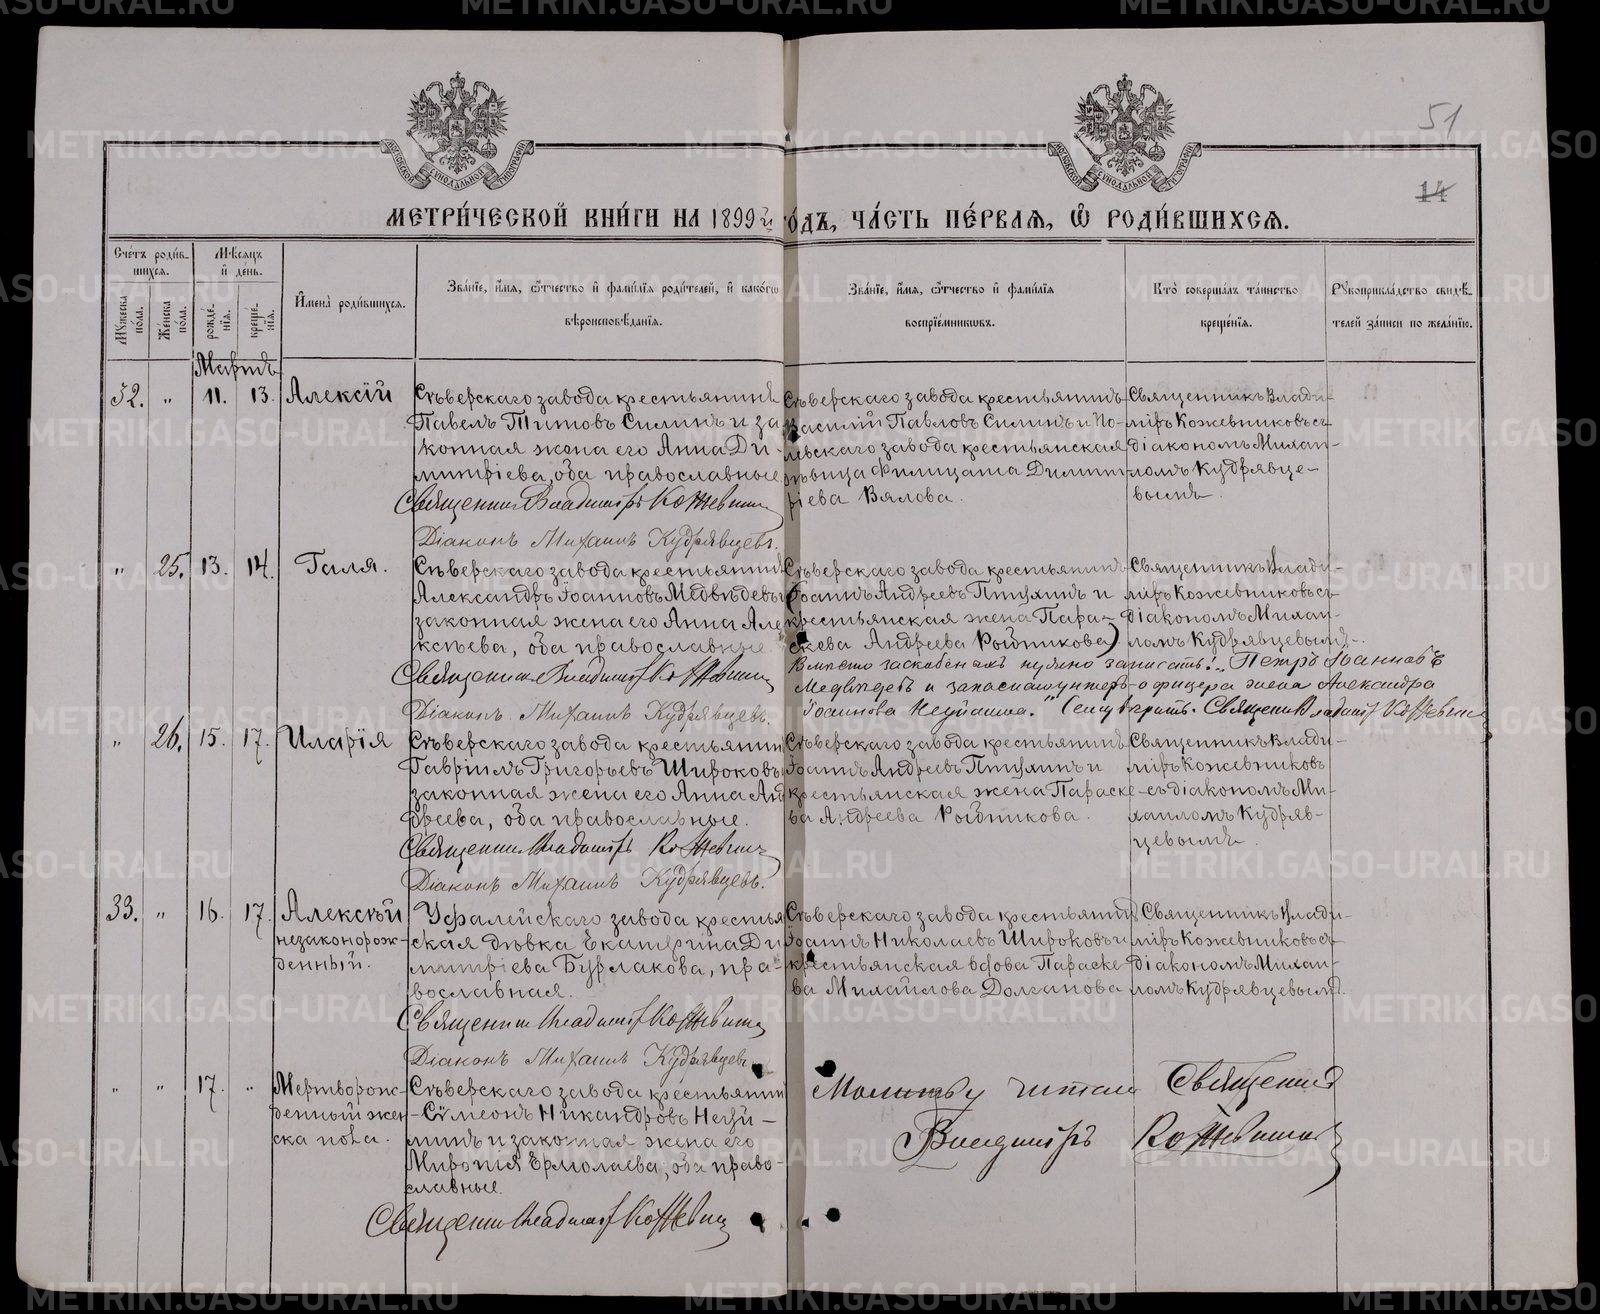 51
14
МЕТРИ́ЧЕСКОЙ КНИ́ГИ НА 1899й го́дъ, ЧА́СТЬ ПЕ́РВАЯ, Ѡ҆ РОДИ́ВШИХСЯ.
Сче́тъ роди́в-
шихся.
Мѣ́сяцъ
и҆ де́нь.
Мꙋ́жеска
по́ла.
Же́нска
по́ла.
рожде́-
нїя.
креще́-
нїя.
И҆мена̀ роди́вшихся.
Зва́нїе, и҆́мя, ѻ҆́тчество и҆ фами́лїя роди́телей, и҆ како́гѡ
вѣроисповѣ́данїя.
Зва́нїе, и҆́мя, ѻ҆́тчество и҆ фами́лїя
воспрїе́мникѡвъ.
Кто̀ соверша́лъ та́инство
креще́нїя.
Рꙋкоприкла́дство свидѣ́-
телей за́писи по жела́нїю.
Мартъ
32. " 11. 13. Алексій
Сѣверскаго завода крестьянинъ
Павелъ Титовъ Силинъ и за
конная жена его Анна Ди-
митріева, оба православные
Священникъ Владиміръ Кожевниковъ
Діаконъ Михаилъ Кудрявцевъ.
Сѣверскаго завода крестьянинъ
Василій Павловъ Силинъ и По-
левскаго завода крестьянская
дѣвица Филицата Димит
ріева Вялова.
Священникъ Влади-
міръ Кожевниковъ съ
діакономъ Михаи-
ломъ Кудрявце-
вымъ.
" 25. 13. 14. Галя.
Сѣверскаго завода крестьянинъ
Александръ Іоанновъ Медвѣдевъ и
законная жена его Анна Але
ксѣева, оба православные
Священникъ Владиміръ Кожевниковъ
Діаконъ Михаилъ Кудрявцевъ.
Сѣверскаго завода крестьянинъ
(Іоаннъ Андреевъ Птухинъ и
крестьянская жена Пара-
скева Андреева Рыбникова)
Вмѣсто заскобеныхъ нужно записать: "Петръ Іоанновъ
Медвѣдевъ и запаснаго унтеръ-офицера жена Александра
Іоаннова Неуймина." Священникъ Владиміръ Кожевниковъ
Священникъ Влади-
міръ Кожевниковъ съ
діакономъ Михаи-
ломъ Кудрявцевымъ.
" 26. 15. 17. Иларія
Сѣверскаго завода крестьянинъ
Гавріилъ Григорьевъ Широковъ и
законная жена его Анна Ан
дреева, оба православные.
Священникъ Владиміръ Кожевниковъ
Діаконъ Михаилъ Кудрявцевъ.
Сѣверскаго завода крестьянинъ
Іоаннъ Андреевъ Птухинъ и
крестьянская жена Параске-
ва Андреева Рыбникова.
Священникъ Влади-
міръ Кожевниковъ
съ діакономъ Ми-
хаиломъ Кудряв-
цевымъ.
33. " 16. 17. Алексѣй
незаконорож-
денный.
Уфалейскаго завода крестья
ская дѣвка Екатерина Ди
митріева Бурлакова, пра-
вославная.
Священникъ Владиміръ Кожевниковъ
Діаконъ Михаилъ Кудрявцевъ
Сѣверскаго завода крестьянинъ
Іоаннъ Николаевъ Широковъ и
крестьянская вдова Параске-
ва Михайлова Долганова
Священникъ Влади-
міръ Кожевниковъ съ
діакономъ Михаи-
ломъ Кудрявцевымъ.
" " 17. " Мертворож-
денный жен
ска пола.
Сѣверскаго завода крестьянинъ
Сѵмеонъ Никандровъ Неуй-
минъ и законная жена его
Миропія Ермолаева, оба право-
славные.
Священникъ Владиміръ Кожевниковъ
Молитву читалъ Священникъ
Владиміръ Кожевниковъ
METRIKI.GASO-URAL.RU